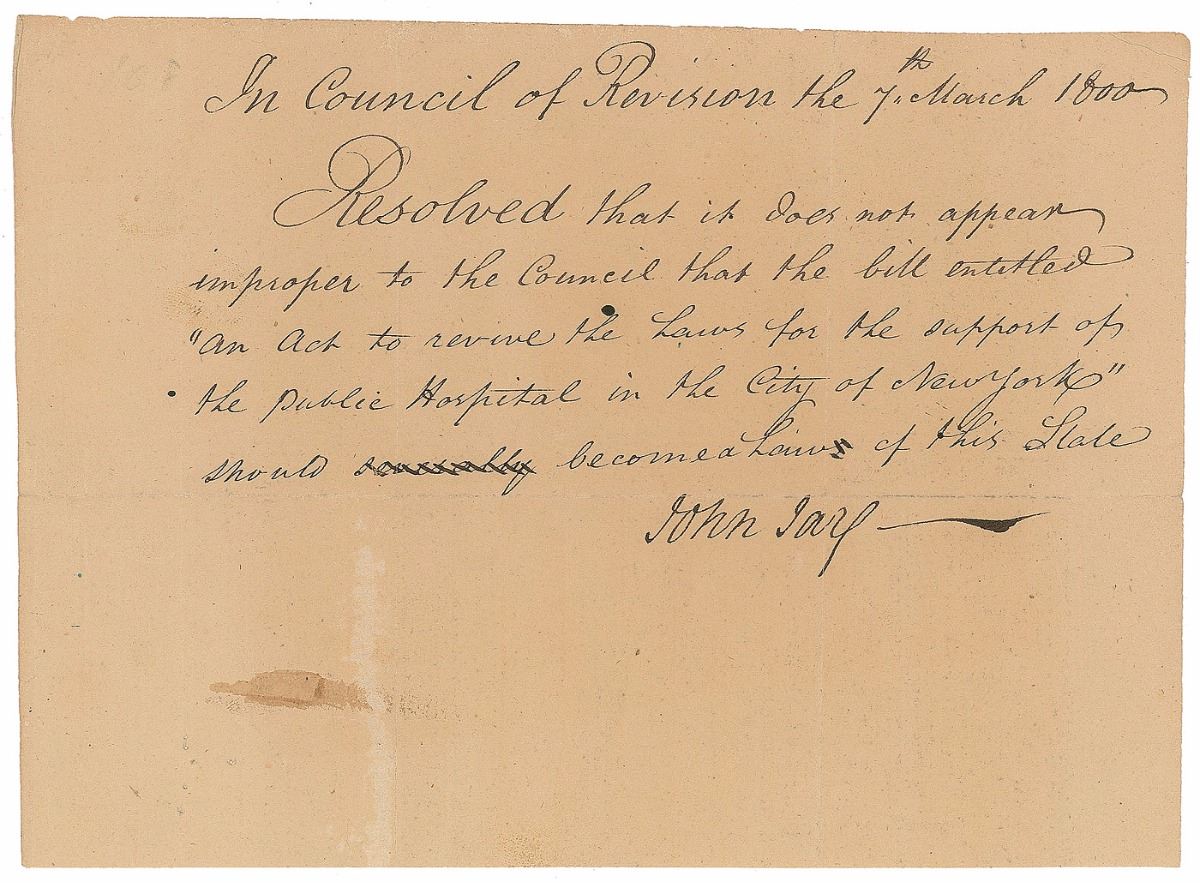 In Council of Revision the 7th March 1800
Resolved that it does not appear
improper to the Council that the bill entitled
"An Act to revive the Laws for the support of
the Public Hospital in the City of New York"
should severally become a Laws of this State
John Jay